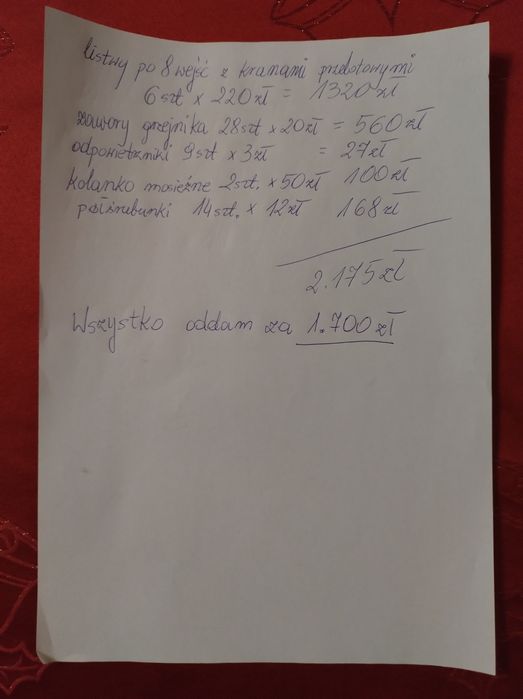 listwy po 8 wejść z kranami przelotowymi
6 szt x 220 zł = 1320 zł
zawory grzejnika 28 szt x 20 zł = 560 zł
odpowietrzniki 9 szt x 3 zł = 27 zł
kolanko mosiężne 2 szt. x 50 zł 100 zł
półśrubunki 14 szt. x 12 zł 168 zł
2.175 zł
Wszystko oddam za 1.700 zł